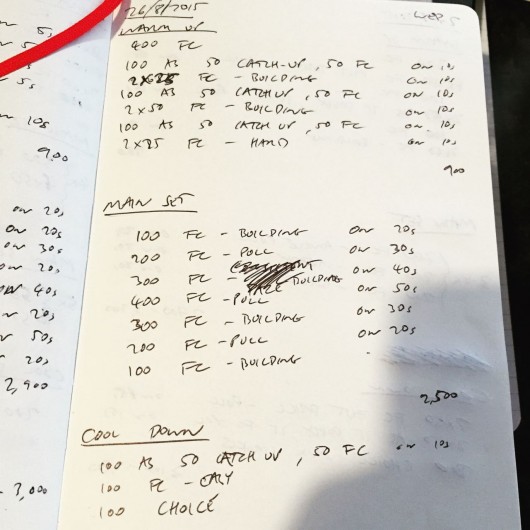 5s
5s
10s
900
on 20s
on 20s
on 30s
on 20s
on 40s
on 20s
on 50s
20s
2,900
3,000
26/8/2015
WED
WARM UP
400 FC
100 AS 50 CATCH-UP, 50 FC on 10s
2x25 FC - BUILDING on 10s
100 AS 50 CATCH UP, 50 FC on 10s
2x50 FC - BUILDING on 10s
100 AS 50 CATCH UP, 50 FC on 10s
2x25 FC - HARD on 10s
900
MAIN SET
100 FC - BUILDING on 20s
200 FC - PULL on 30s
300 FC - BUILDING on 40s
400 FC - PULL on 50s
300 FC - BUILDING on 30s
200 FC - PULL on 20s
100 FC - BUILDING
2,500
COOL DOWN
100 AS 50 CATCH UP, 50 FC on 10s
100 FC - EASY
100 CHOICE